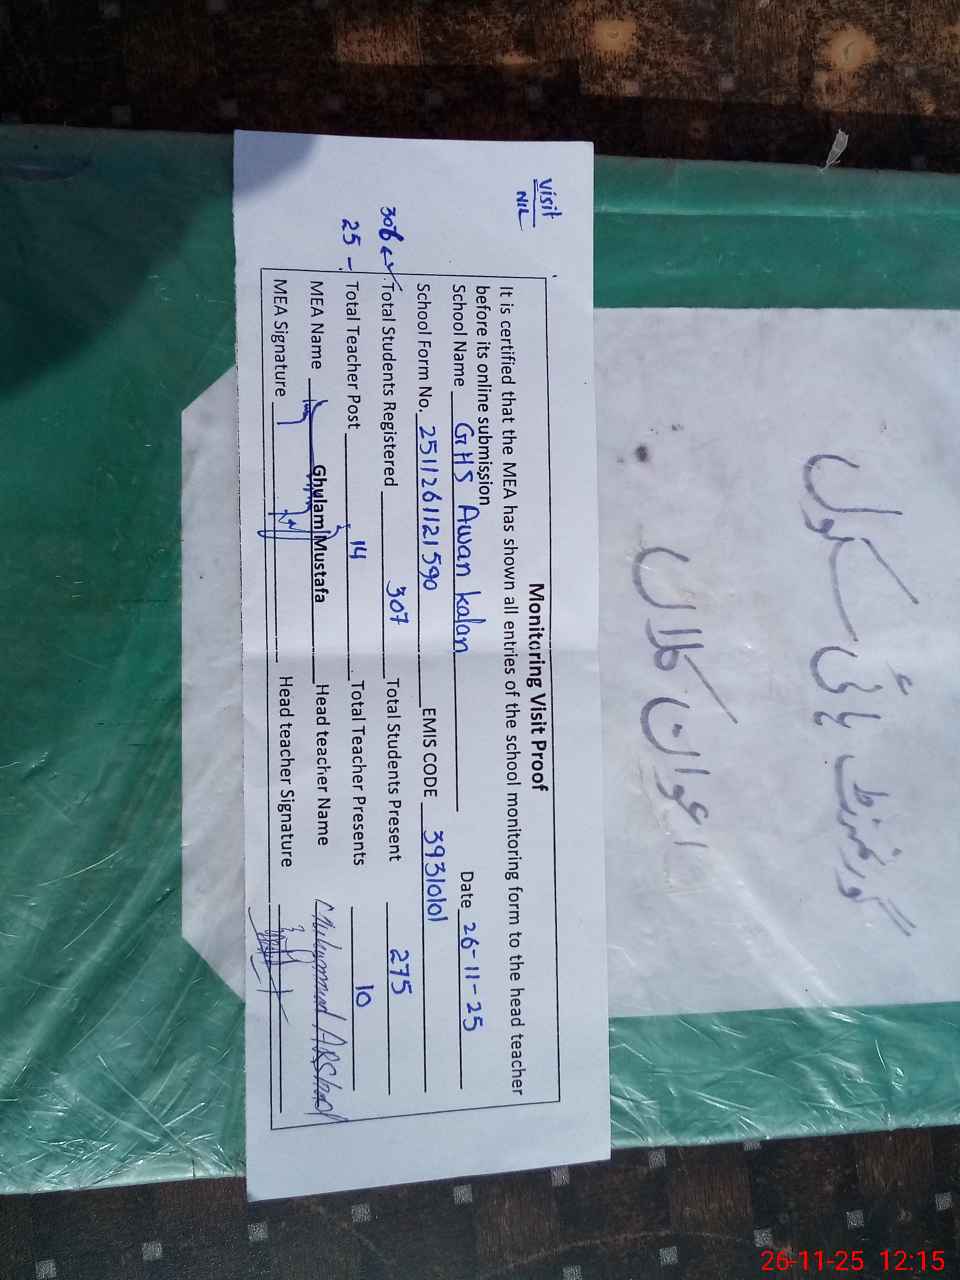 گورنمنٹ ہائی سکول
اعوان کلاں
Visit
NIL
Monitoring Visit Proof
It is certified that the MEA has shown all entries of the school monitoring form to the head teacher
before its online submission
School Name GHS Awan kalan Date 26-11-25
School Form No. 2511261121590 EMIS CODE 39310101
306 Total Students Registered 307 Total Students Present 275
25 - Total Teacher Post 14 Total Teacher Presents 10
MEA Name Ghulam Mustafa Head teacher Name Muhammad ARShad
MEA Signature Head teacher Signature
26-11-25 12:15